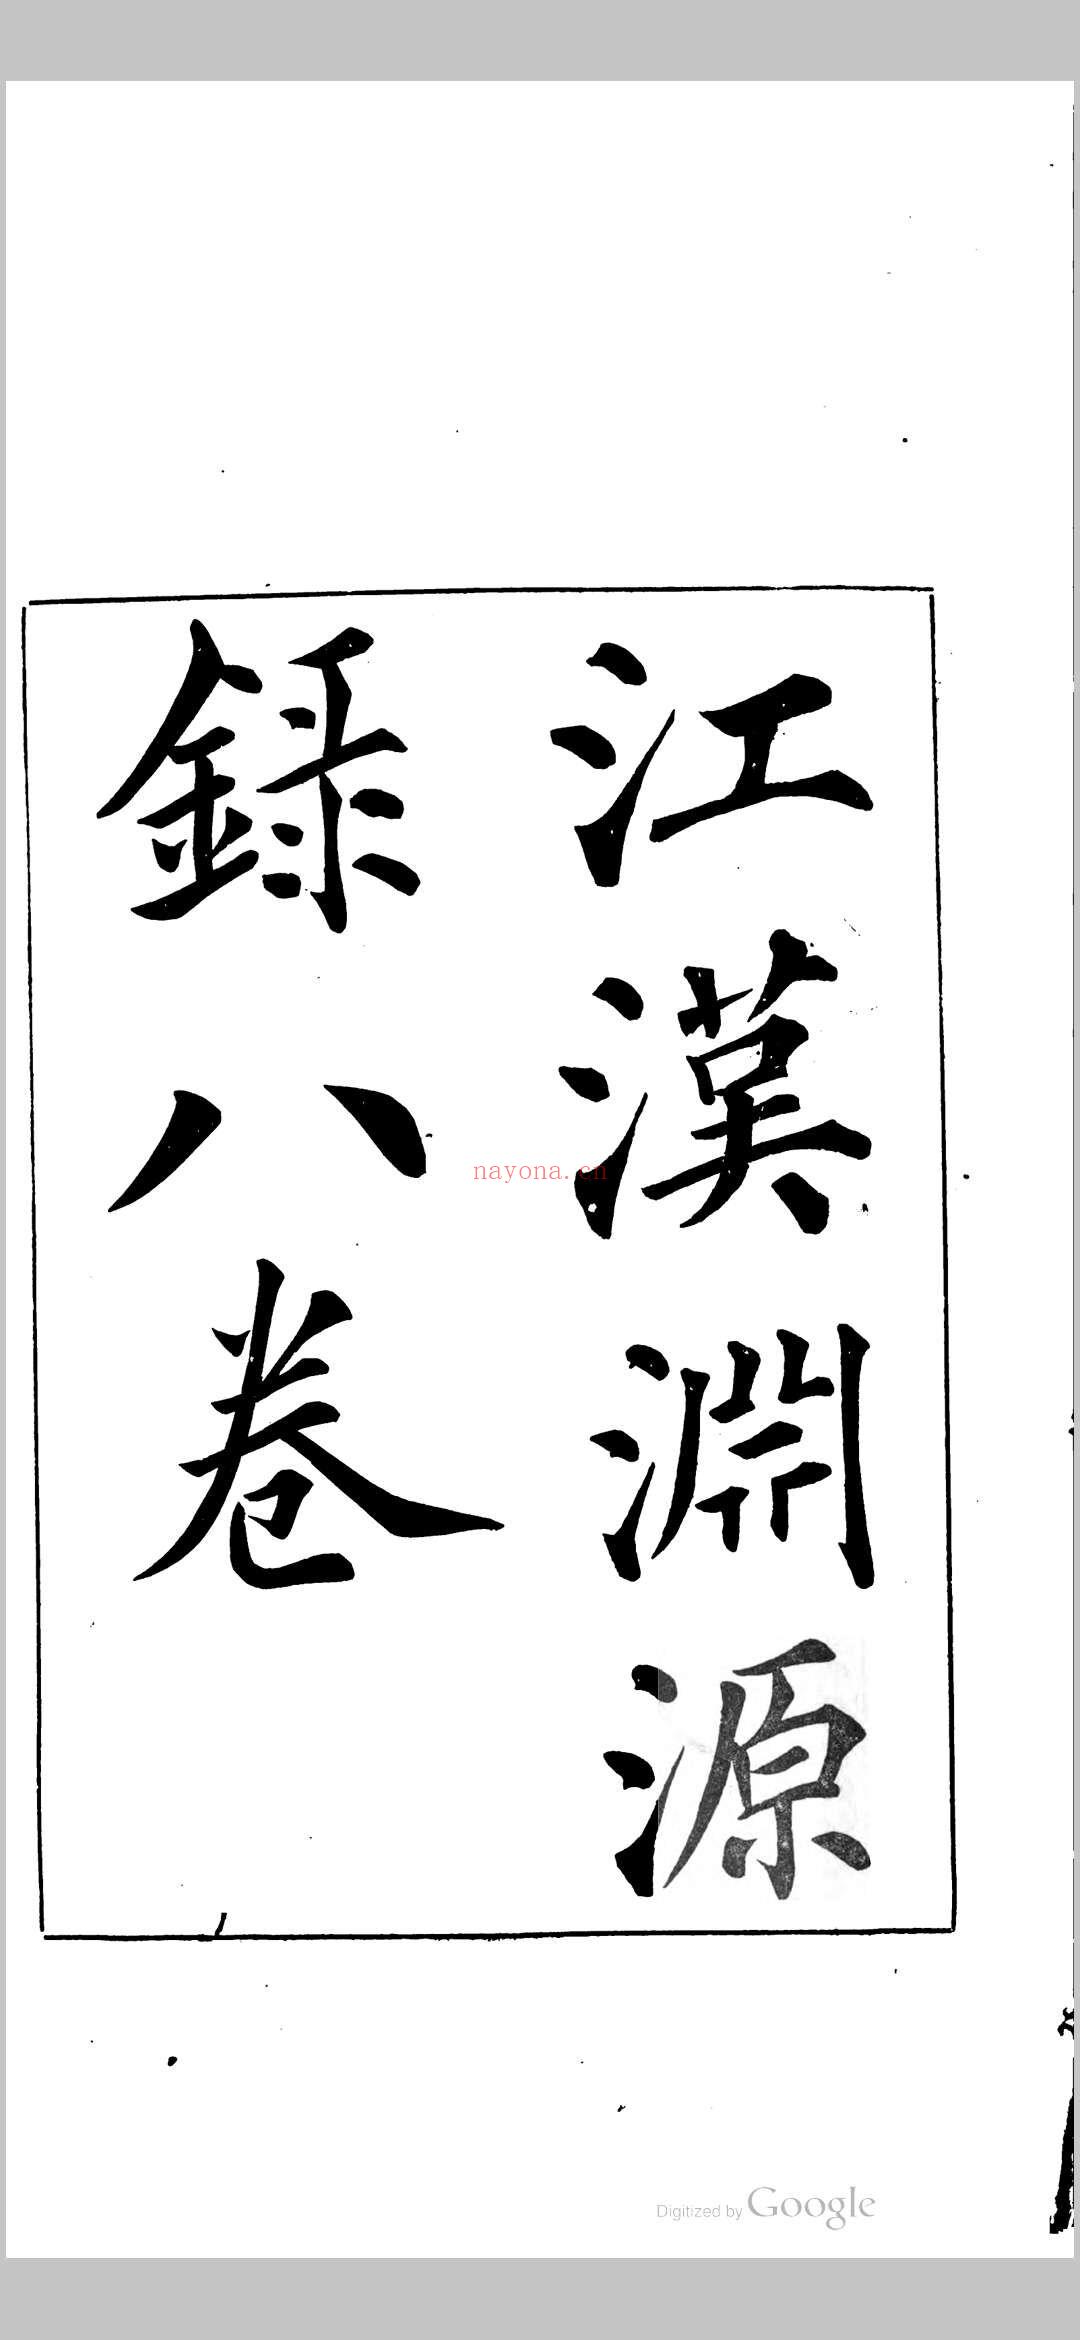 江漢淵源
録八卷
nayona.cn
Digitized by Google